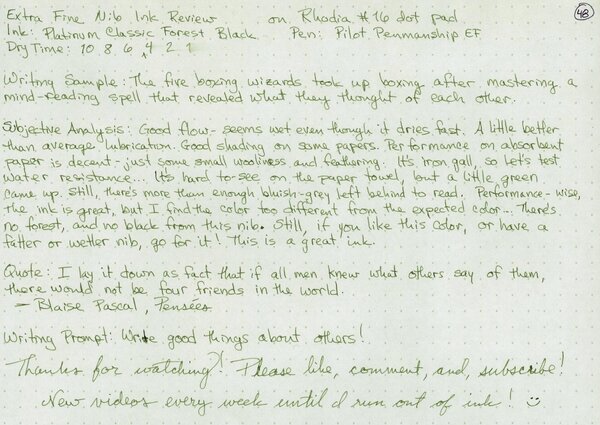 Extra Fine Nib Ink Review on Rhodia #16 dot pad 48
Ink: Platinum Classic Forest Black Pen: Pilot Penmanship EF
Dry Time: 10 8 6 4 2 1
Writing Sample: The five boxing wizards took up boxing after mastering a
mind-reading spell that revealed what they thought of each other.
Subjective Analysis: Good flow - seems wet even though it dries fast. A little better
than average lubrication. Good shading on some papers. Performance on absorbent
paper is decent - just some small wooliness and feathering. It's iron gall, so let's test
water resistance... It's hard to see on the paper towel, but a little green
came up. Still, there's more than enough bluish-grey left behind to read. Performance-wise,
the ink is great, but I find the color too different from the expected color... There's
no forest, and no black from this nib. Still, if you like this color, or have a
fatter or wetter nib, go for it! This is a great ink.
Quote: I lay it down as fact that if all men knew what others say of them,
there would not be four friends in the world.
— Blaise Pascal, Pensées
Writing Prompt: Write good things about others!
Thanks for watching! Please like, comment, and, subscribe!
New videos every week until I run out of ink!